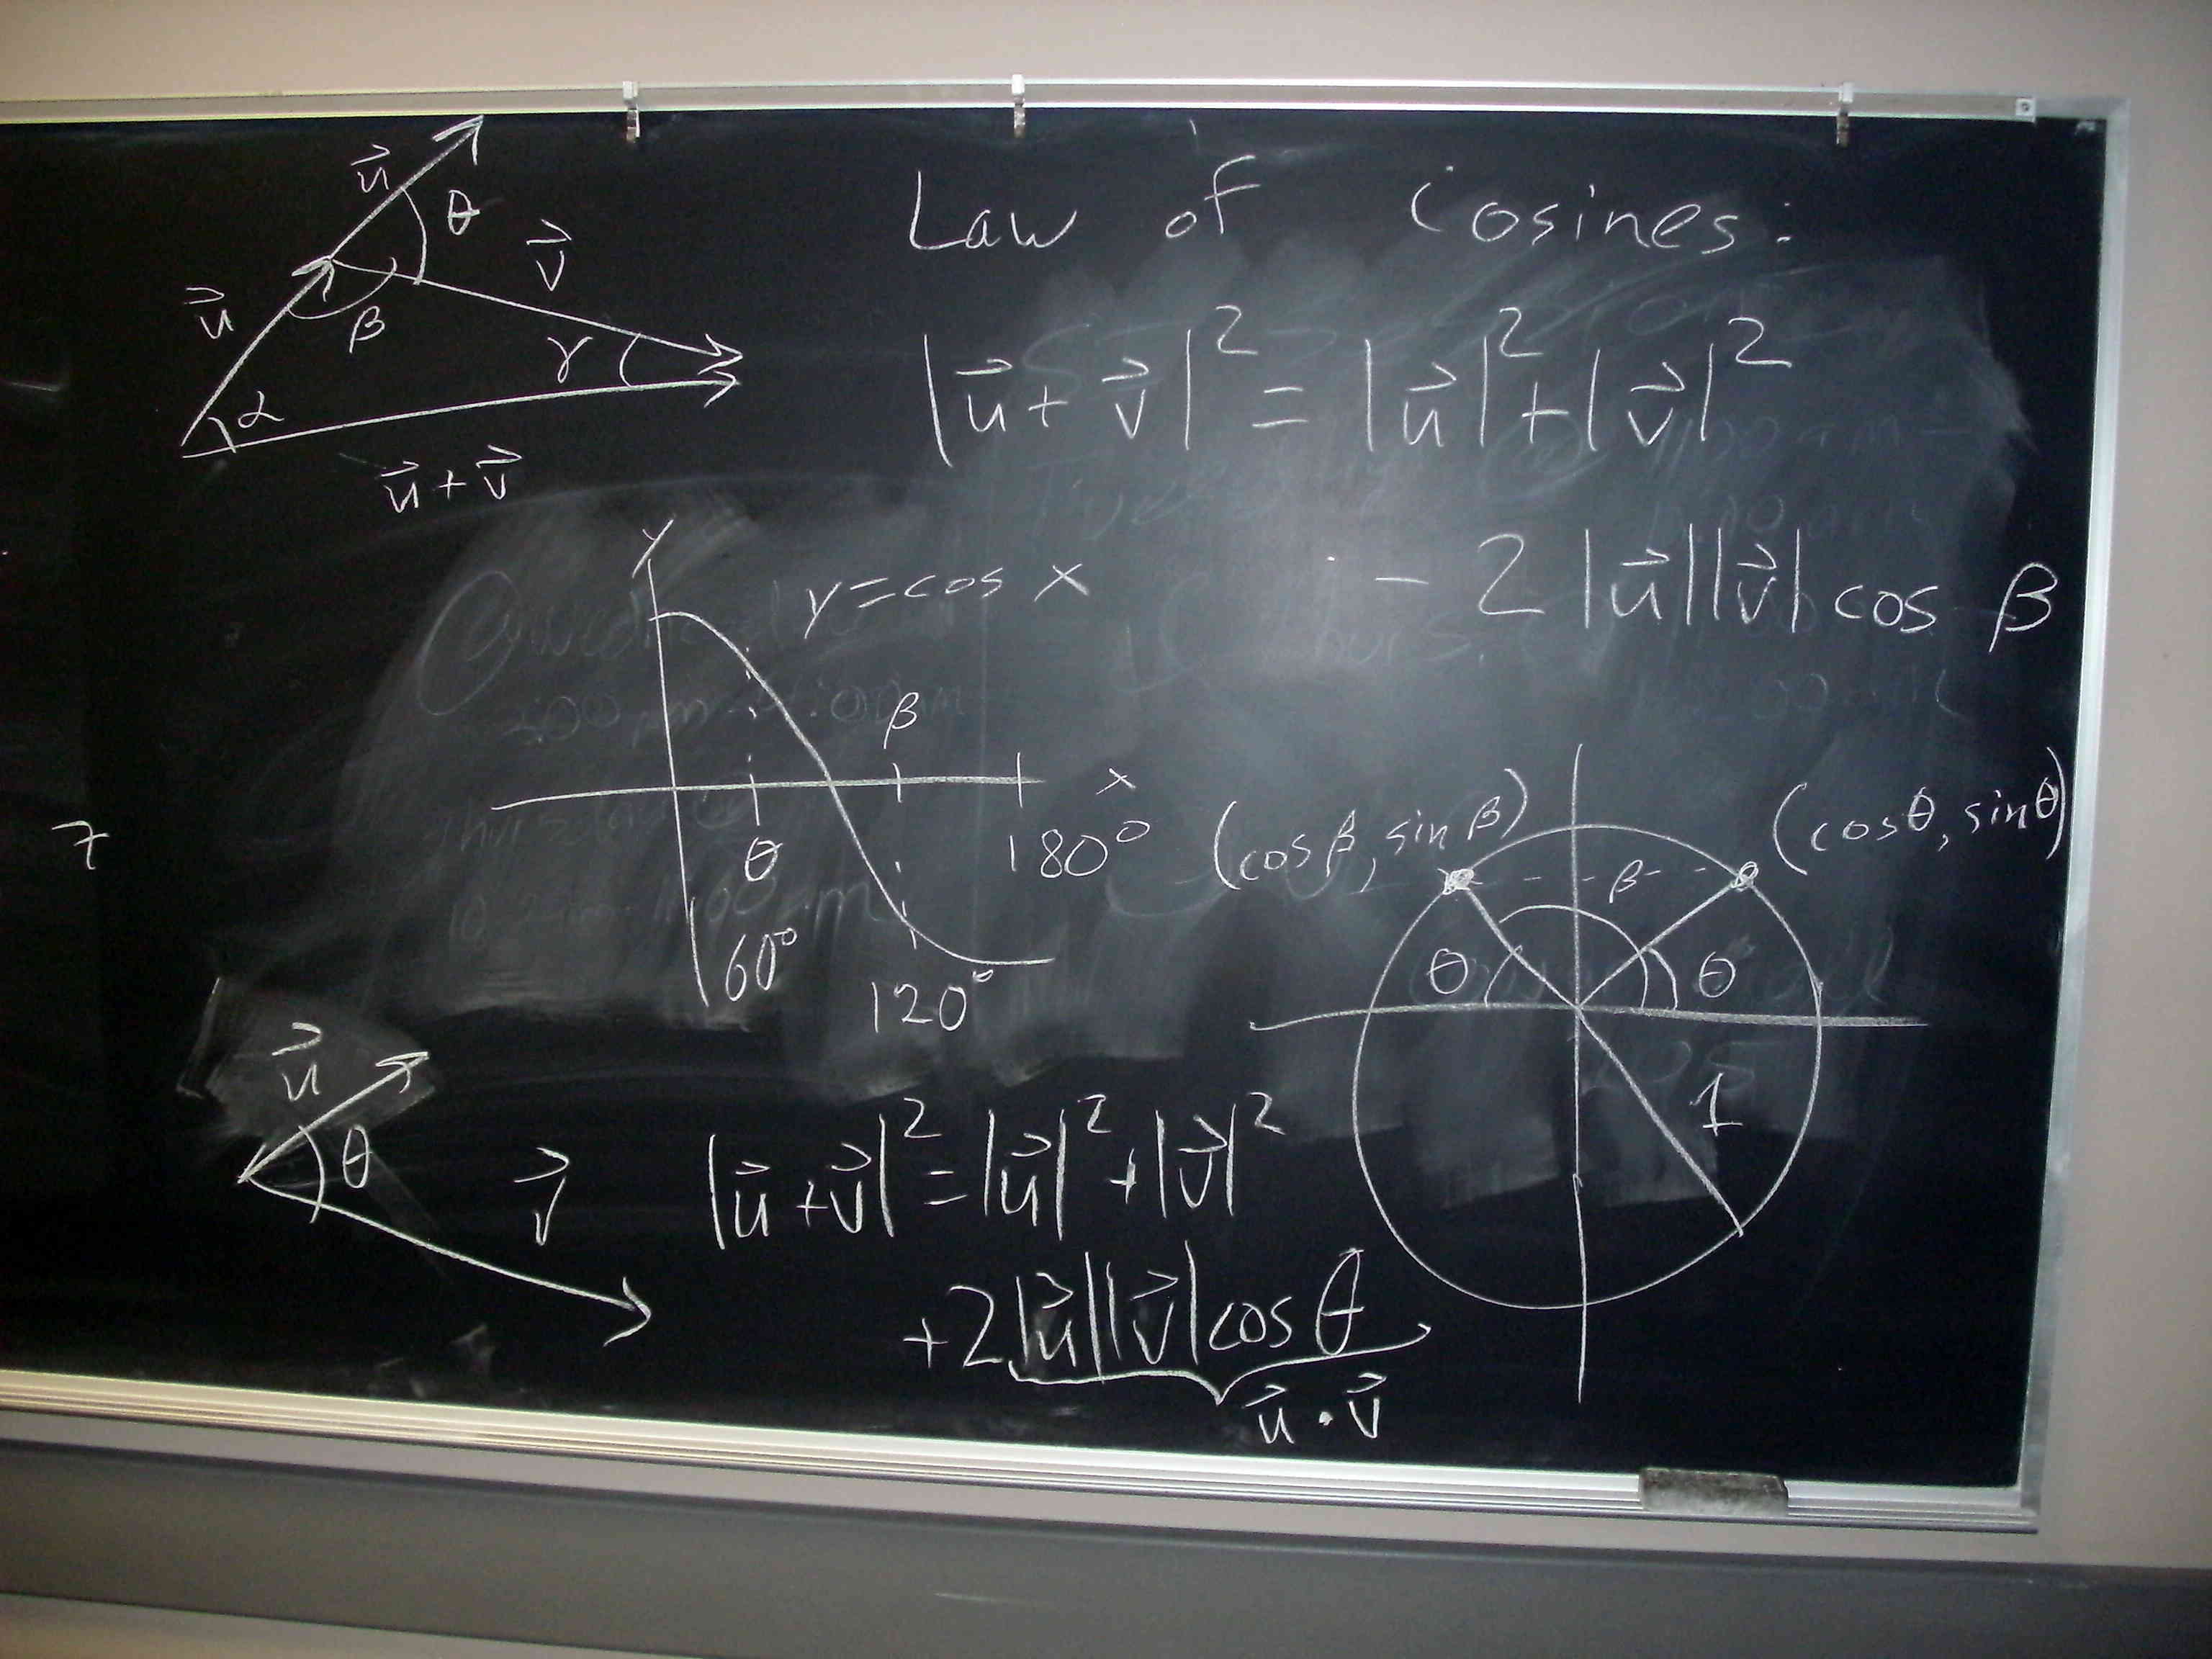 u⃗ θ
v⃗
u⃗ β γ
α
u⃗ + v⃗
Law of Cosines:
|u⃗ + v⃗|² = |u⃗|² + |v⃗|²
- 2 |u⃗||v⃗| cos β
y
y = cos x
β
x
θ 180°
60°
120°
7
(cos β, sin β) (cos θ, sin θ)
β
θ θ
1
u⃗
θ
v⃗
|u⃗ + v⃗|² = |u⃗|² + |v⃗|²
+ 2 |u⃗||v⃗| cos θ
u⃗ · v⃗